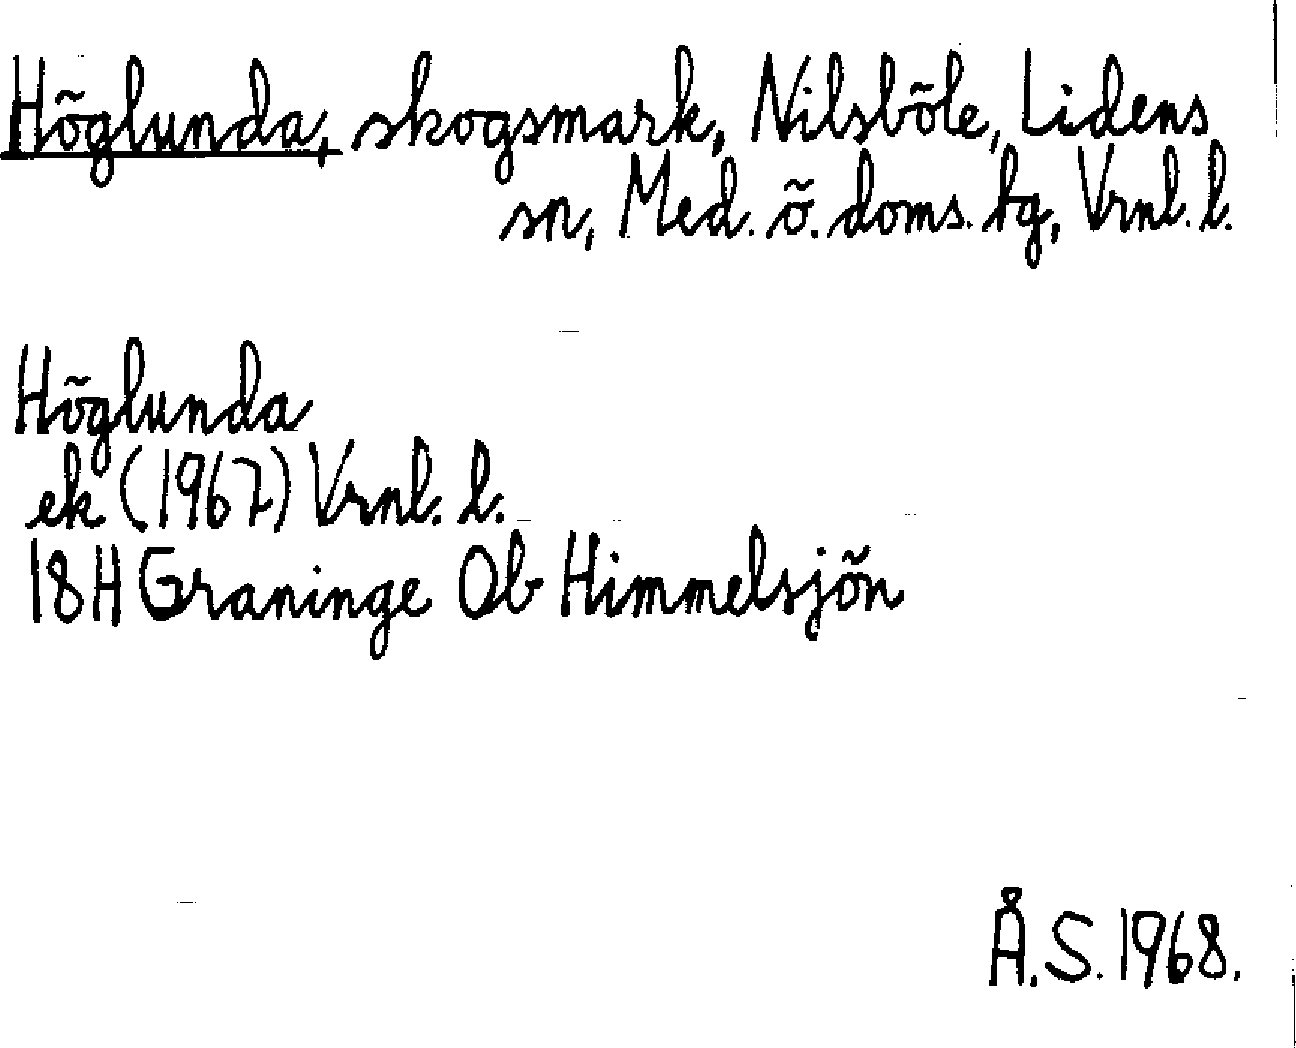 Höglunda, skogsmark, Nilsböle, Lidens
sn, Med. ö. doms. tg, Vrnl. l.
Höglunda
ek (1967) Vrnl. l.
18H Graninge Ob Himmelsjön
Å.S. 1968.